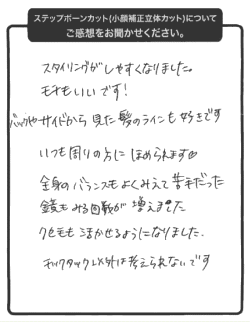 ステップボーンカット(小顔補正立体カット)について
ご感想をお聞かせください。
スタイリングがしやすくなりました。
モチもいいです!
バックやサイドから見た髪のラインも好きです
いつも周りの方にほめられます♡
全身のバランスもよくみえて苦手だった
鏡もみる回数が増えました
クセ毛も活かせるようになりました。
以外は考えられないです